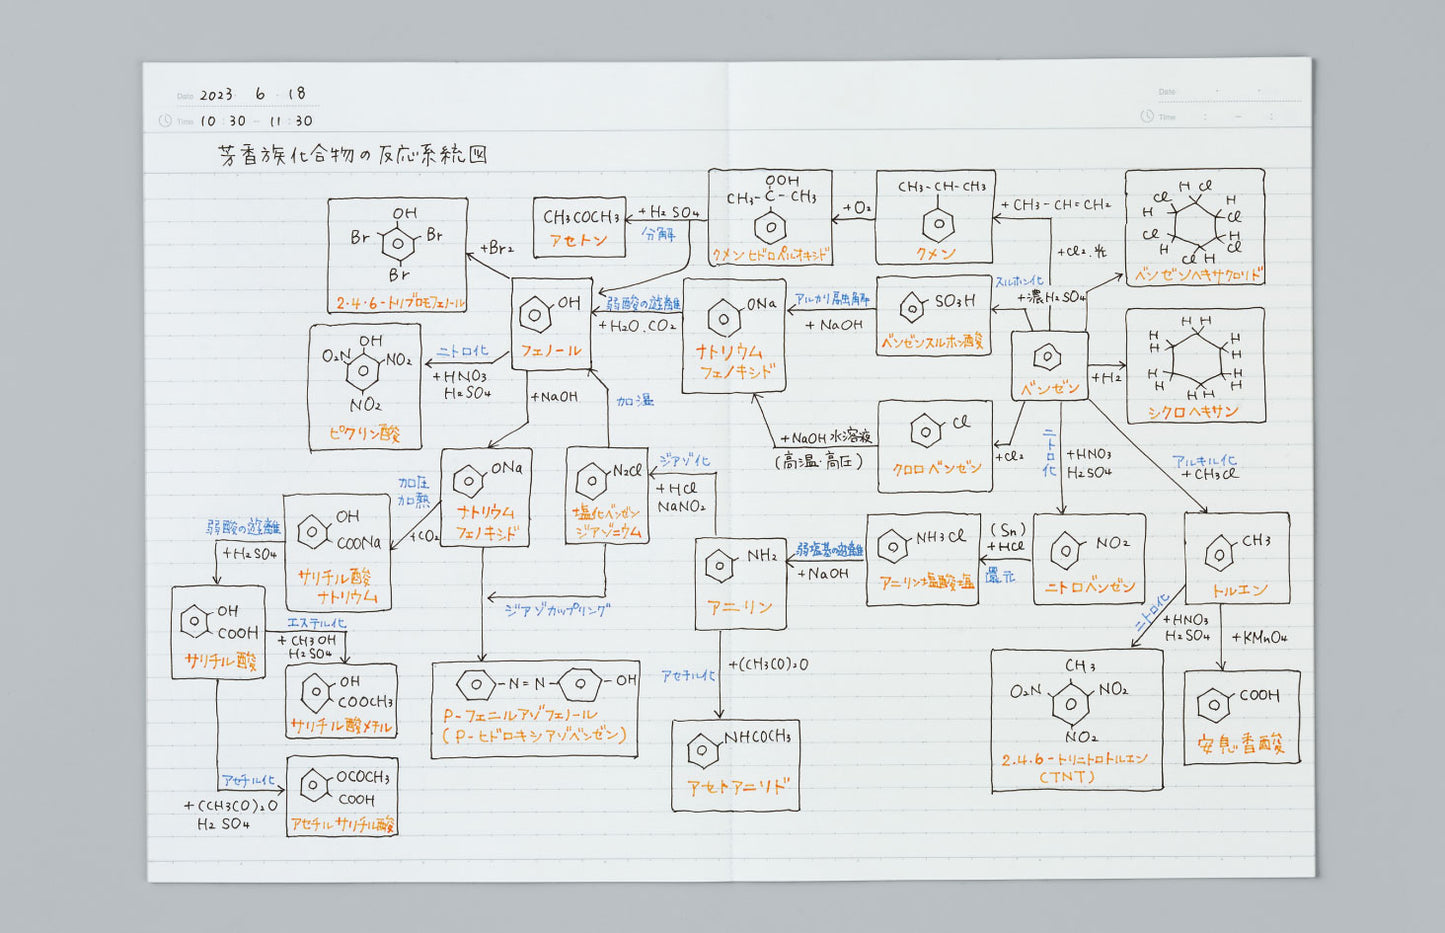 Date 2023 6 18
Time 10:30 - 11:30
Date
Time : - :
芳香族化合物の反応系統図
OH
Br
Br
Br
2・4・6-トリブロモフェノール
+Br2
CH3COCH3
アセトン
+H2SO4
分解
OOH
CH3-C-CH3
クメンヒドロペルオキシド
+O2
CH3-CH-CH3
クメン
+CH3-CH=CH2
+Cl2.光
H Cl
Cl
H
H
Cl
Cl
H
H
Cl
Cl H
ベンゼンヘキサクロリド
OH
O2N
NO2
NO2
ピクリン酸
ニトロ化
+HNO3
H2SO4
OH
フェノール
弱酸の遊離
+H2O.CO2
ONa
ナトリウム
フェノキシド
アルカリ融解
+NaOH
SO3H
ベンゼンスルホン酸
スルホン化
+濃H2SO4
ベンゼン
+H2
H H
H
H
H
H
H
H
H
H
H H
シクロヘキサン
+NaOH
加温
+NaOH水溶液
(高温・高圧)
Cl
クロロベンゼン
+Cl2
ニトロ化
+HNO3
H2SO4
アルキル化
+CH3Cl
弱酸の遊離
+H2SO4
OH
COONa
サリチル酸
ナトリウム
加圧
加熱
+CO2
ONa
ナトリウム
フェノキシド
N2Cl
塩化ベンゼン
ジアゾニウム
ジアゾ化
+HCl
NaNO2
NH2
アニリン
弱塩基の遊離
+NaOH
NH3Cl
アニリン塩酸塩
(Sn)
+HCl
還元
NO2
ニトロベンゼン
CH3
トルエン
OH
COOH
サリチル酸
エステル化
+CH3OH
H2SO4
OH
COOCH3
サリチル酸メチル
ジアゾカップリング
N=N
OH
P-フェニルアゾフェノール
(P-ヒドロキシアゾベンゼン)
アセチル化
+(CH3CO)2O
NHCOCH3
アセトアニリド
ニトロ化
+HNO3
H2SO4
+KMnO4
CH3
O2N
NO2
NO2
2.4.6-トリニトロトルエン
(TNT)
COOH
安息香酸
アセチル化
+(CH3CO)2O
H2SO4
OCOCH3
COOH
アセチルサリチル酸